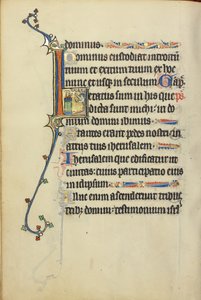 dominus.
Dominus custodiat introitū
tuum et exitum tuum ex hoc
nunc et usq; in seculum
Letatus sum in his que
dicta sunt michi: in do
mum domini ibimus
Stantes erant pedes nostri in
atriis tuis iherusalem.
Iherusalem que edificatur ut
ciuitas: cuius participatio eius
in idipsum.
Illuc enim ascenderunt tribus
tribꝫ domini: testimonium isrl